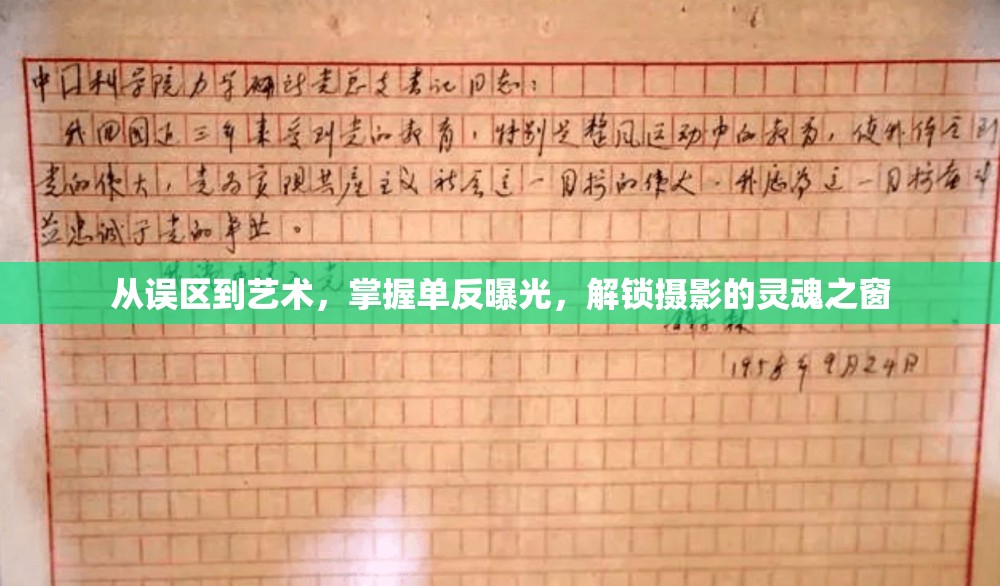 中国科学院力学研究所党总支书记同志：
我回国近三年来受到党的教育，特别是整风运动中的教育，使我体会到
党的伟大，党为实现共产主义社会这一目标的伟大。我愿为这一目标奋斗
并忠诚于党的事业。
从误区到艺术，掌握单反曝光，解锁摄影的灵魂之窗
1958年9月24日